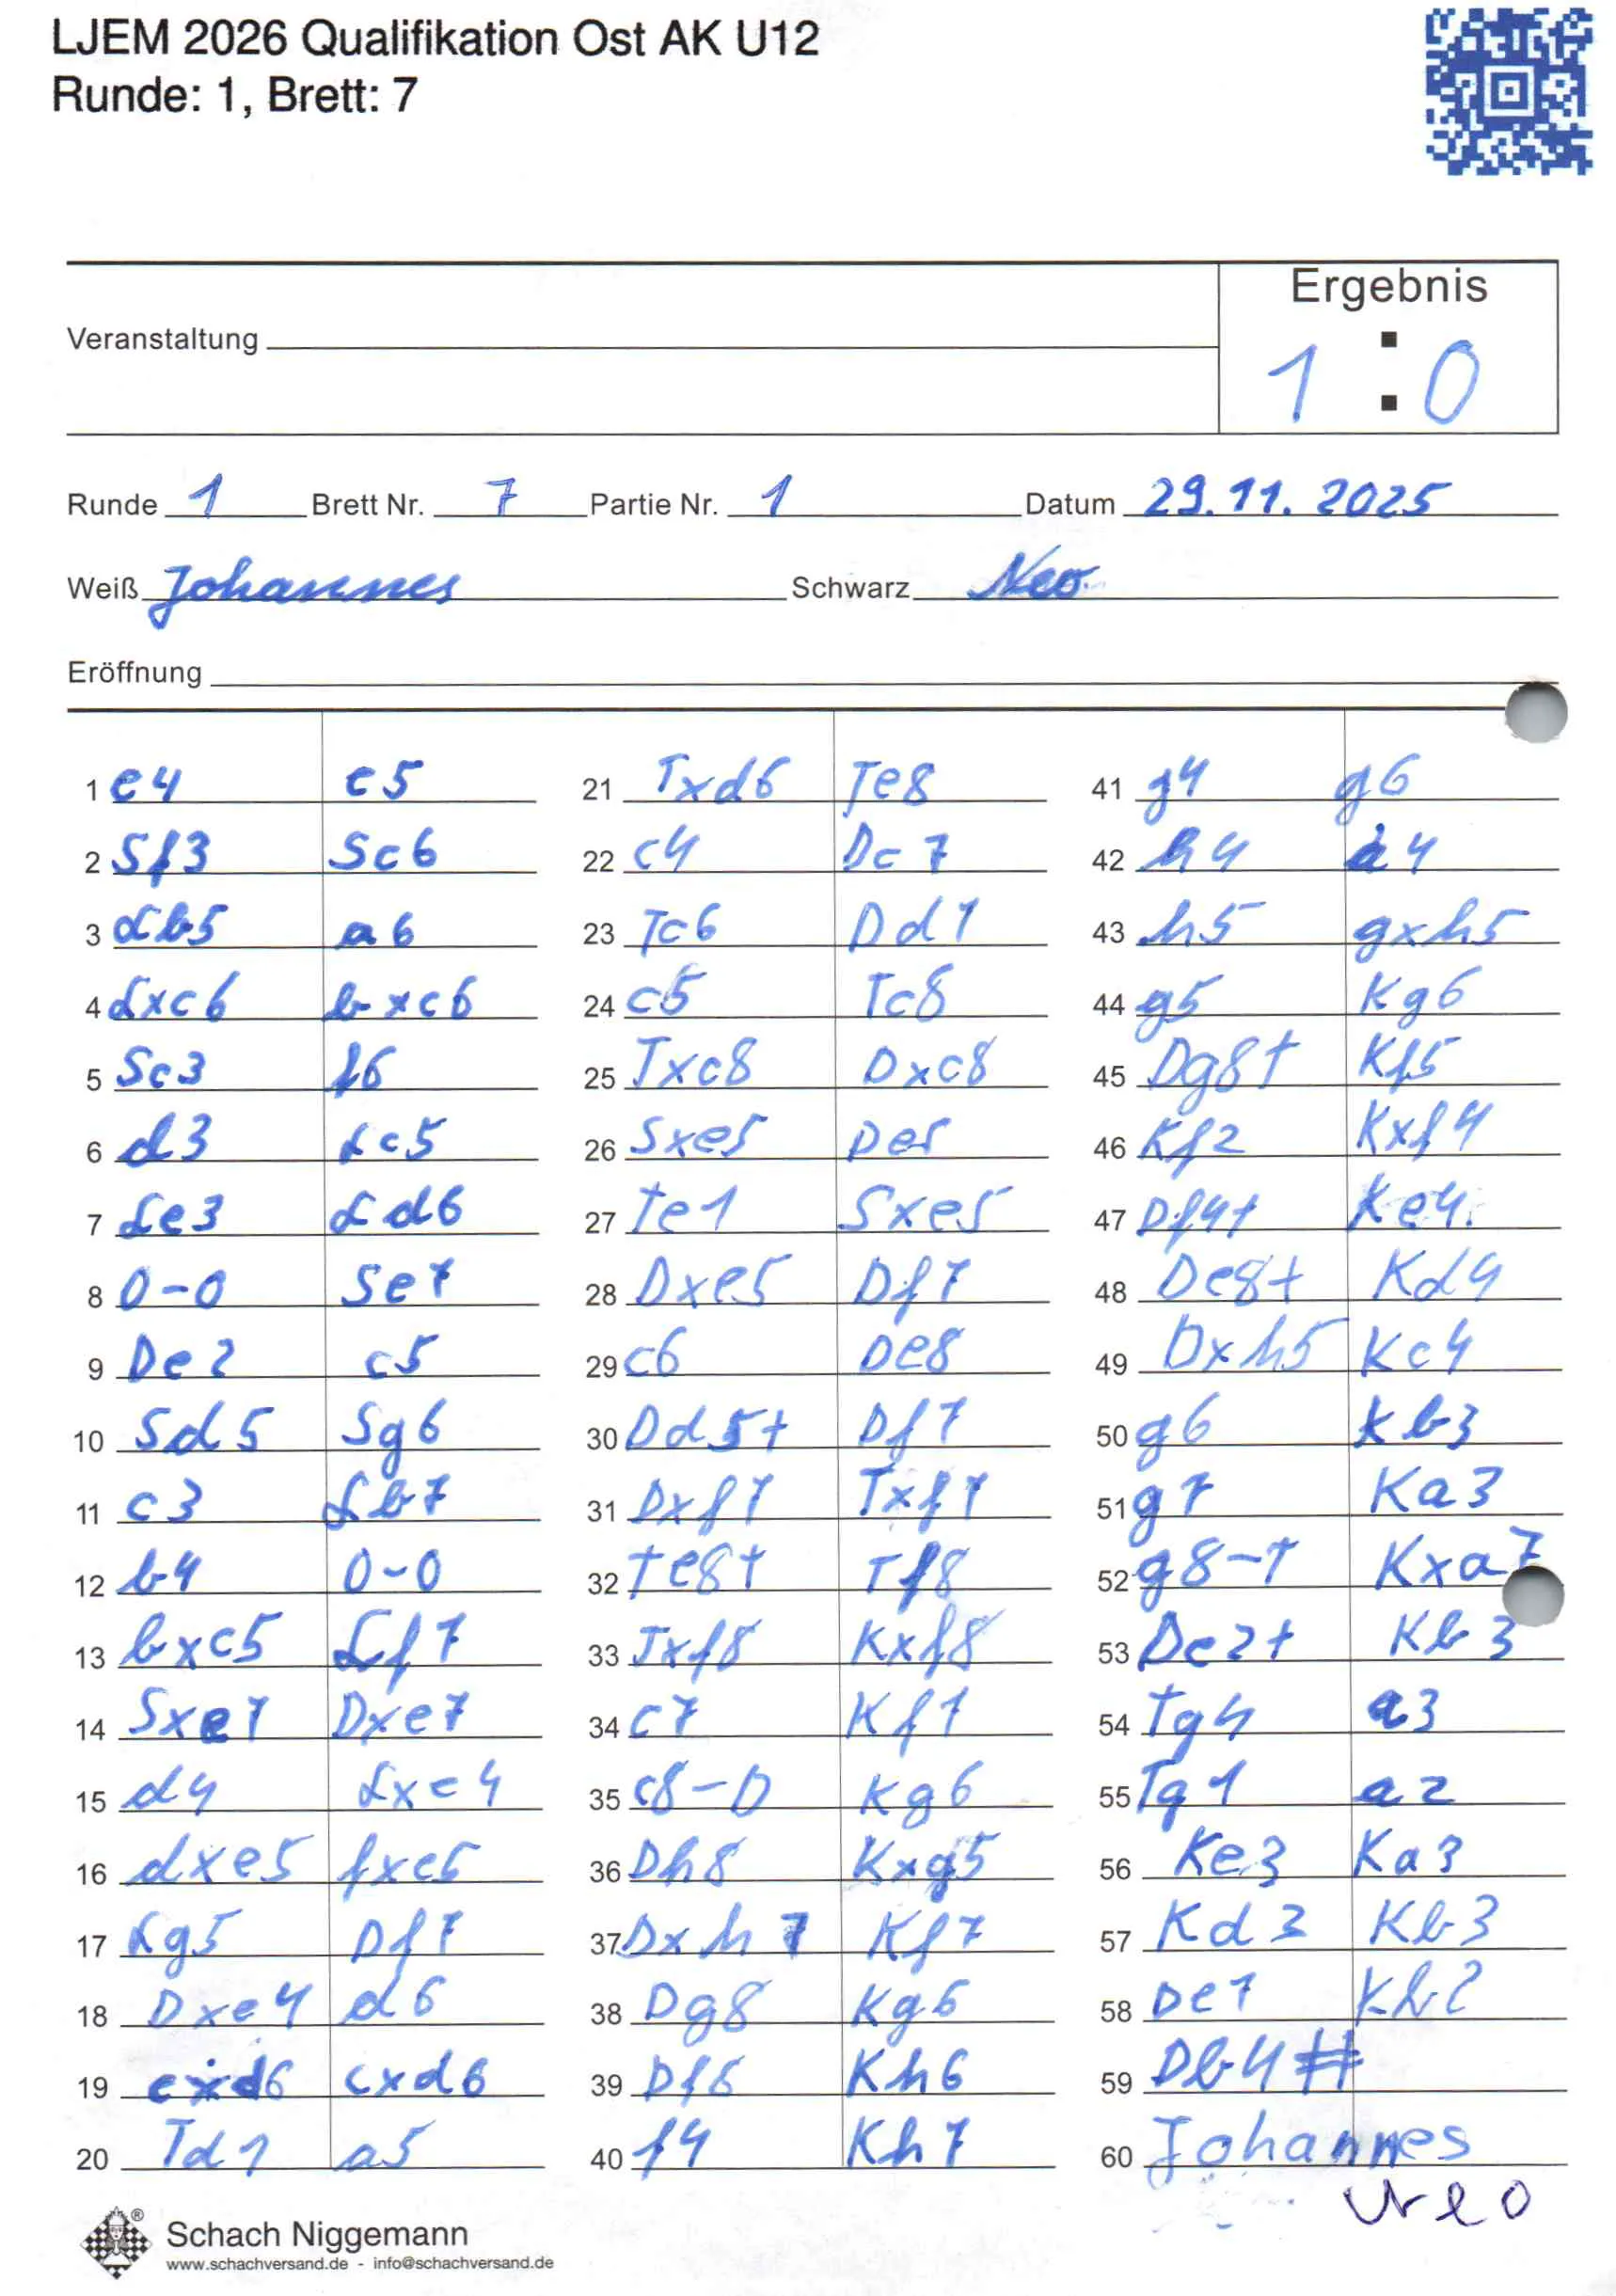 LJEM 2026 Qualifikation Ost AK U12
Runde: 1, Brett: 7
Ergebnis
Veranstaltung
1 : 0
Runde 1 Brett Nr. 7 Partie Nr. 1 Datum 29.11.2025
Weiß Johannes Schwarz Neo
Eröffnung
1 e4 e5
2 Sf3 Sc6
3 Lb5 a6
4 Lxc6 bxc6
5 Sc3 f6
6 d3 Lc5
7 Le3 Ld6
8 0-0 Se7
9 De2 c5
10 Sd5 Sg6
11 c3 Lb7
12 b4 0-0
13 bxc5 Lf7
14 Sxe7 Dxe7
15 d4 Lxe4
16 dxe5 fxe5
17 Lg5 Df7
18 Dxe4 d6
19 cxd6 cxd6
20 Td1 a5
21 Txd6 Te8
22 c4 Dc7
23 Tc6 Dd7
24 c5 Tc8
25 Txc8 Dxc8
26 Sxe5 De5
27 Te1 Sxe5
28 Dxe5 Df7
29 c6 De8
30 Dd5+ Df7
31 Dxf7 Txf7
32 Te8+ Tf8
33 Txf8 Kxf8
34 c7 Kf7
35 c8-D Kg6
36 Dh8 Kxg5
37 Dxh7 Kf7
38 Dg8 Kg6
39 Df6 Kh6
40 f4 Kh7
41 g4 g6
42 h4 a4
43 h5 gxh5
44 g5 Kg6
45 Dg8+ Kf5
46 Kf2 Kxf4
47 Df4+ Ke4.
48 De8+ Kd4
49 Dxh5 Kc4
50 g6 Kb3
51 g7 Ka3
52 g8-T Kxa7
53 De2+ Kb3
54 Tg4 a3
55 Tg1 a2
56 Ke3 Ka3
57 Kd2 Kb3
58 De7 Kb2
59 Db4#
60 Johannes
Neo
Schach Niggemann
www.schachversand.de - info@schachversand.de